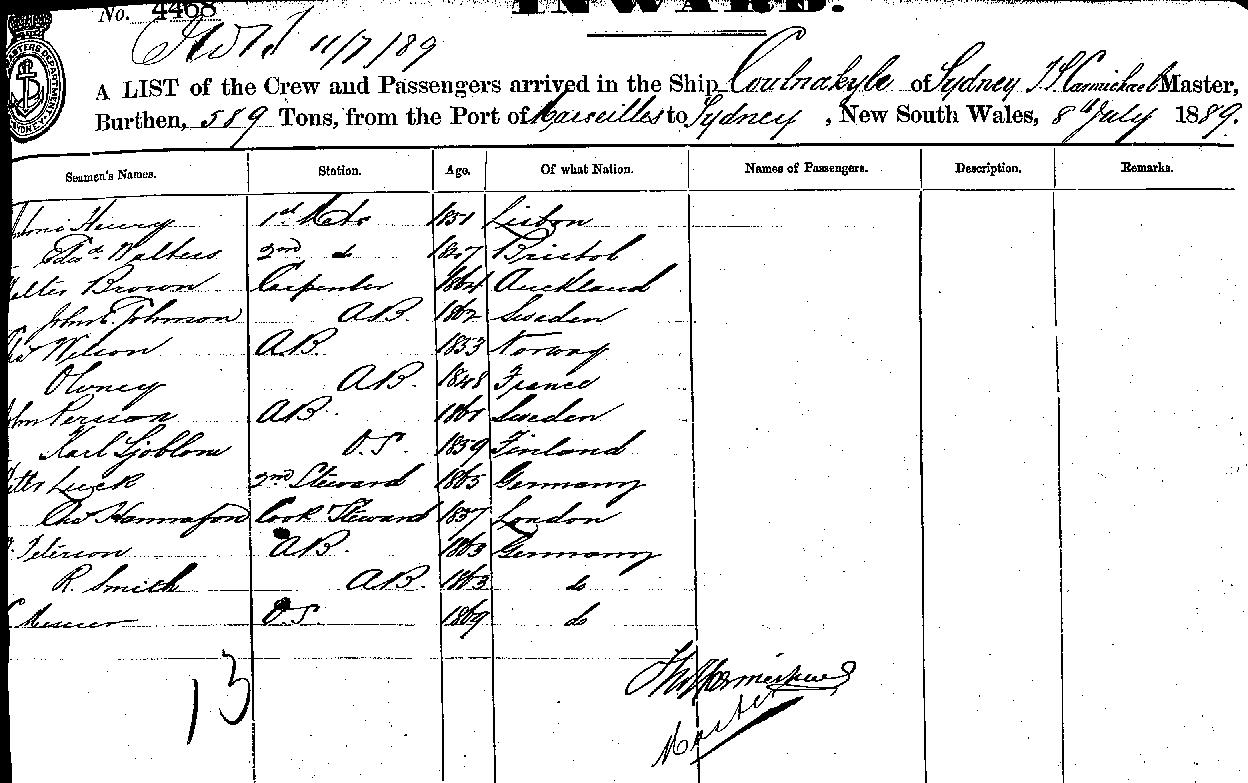 No. 4468
INWARD.
11/7/89
A LIST of the Crew and Passengers arrived in the Ship Coulnakyle of Sydney T S Carmichael Master,
Burthen, 589 Tons, from the Port of Marseilles to Sydney, New South Wales, 8th July 1889.
Seamen's Names. Station. Age. Of what Nation. Names of Passengers. Description. Remarks.
Henry 1st Mate 1851 Lisbon
Edwd. Walters 2nd do 1847 Bristol
alter Brown Carpenter 1864 Auckland
John E. Johnson A.B. 1862 Sweden
Wilson A.B. 1853 Norway
Olvney A.B. 1848 France
ohn Persson A.B. 1861 Sweden
Karl Sjoblom O.S. 1859 Finland
eter Luck 2nd Steward 1865 Germany
Chs Hannaford Cook Steward 1857 London
Peterson A.B. 1863 Germany
R. Smith A.B. 1863 do
O.S. 1869 do
13
Master